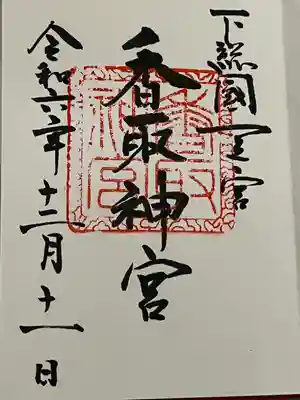 下総國一宮
香取神宮
令和六年十二月十一日